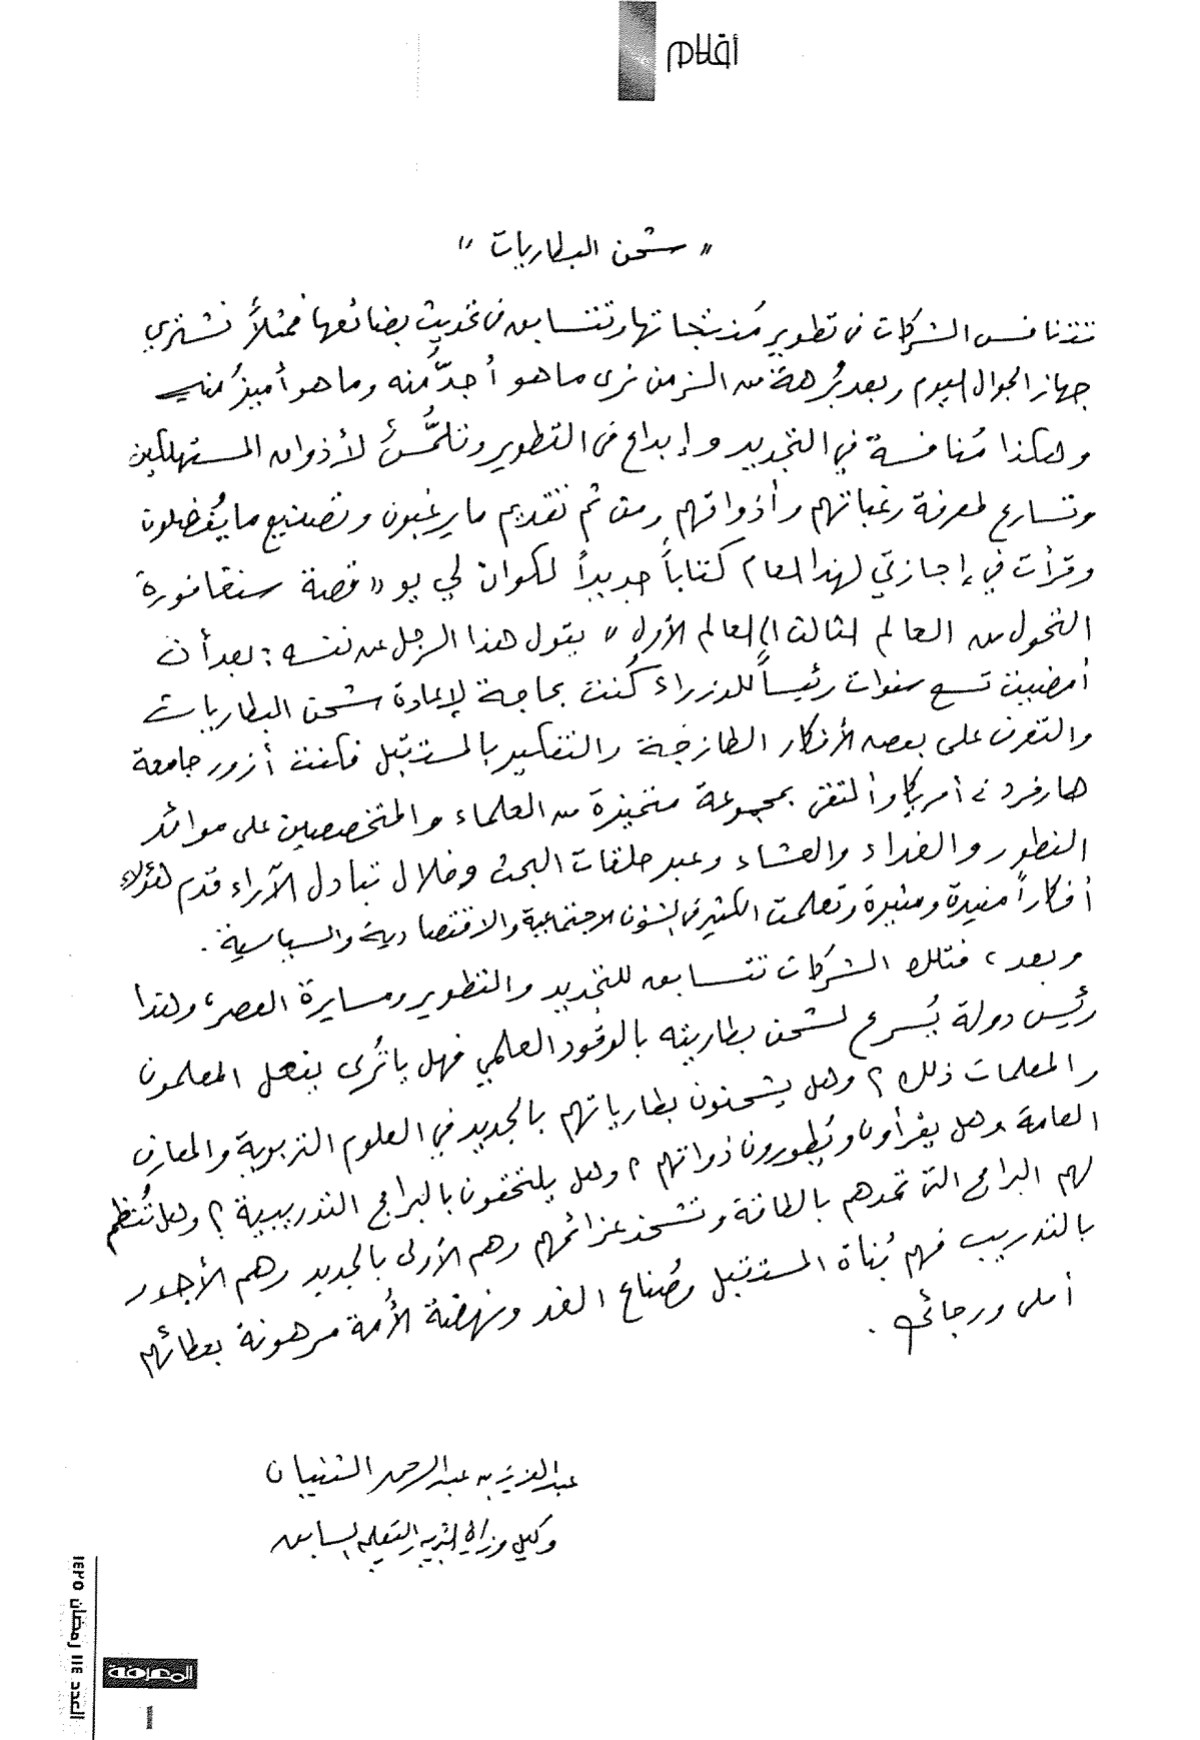 أقلام
" شحن البطاريات "
تتنافس الشركات في تطوير مُنتجاتها وتتسابق في تحديث بضائعها فمثلاً نشتري
جهاز الجوال اليوم وبعد بُرهة من الزمن نرى ما هو أجدَّ منه وما هو أميزُ منه
وهكذا مُنافسة في التجديد وإبداع في التطوير وتلمُّسٌ لأذواق المستهلكين
وتسارع لمعرفة رغباتهم وأذواقهم ومن ثم تقديم ما يرغبون وتصنيع ما يُفضلون
وقرأت في إجازتي لهذا العام كتاباً جديداً لكوان لي يو " قصة سنغافورة
التحول من العالم الثالث إلى العالم الأول " يقول هذا الرجل عن نفسه : بعد أن
أمضيت تسع سنوات رئيساً للوزراء كُنت بحاجة لإعادة شحن البطاريات
والتعرف على بعض الأفكار الطازجة والتفكير بالمستقبل فكنت أزور جامعة
هارفرد في أمريكا وألتقي بمجموعة متميزة من العلماء والمتخصصين على موائد
الفطور والغداء والعشاء وعبر حلقات البحث وخلال تبادل الآراء قدم هؤلاء
أفكاراً مفيدة ومثيرة وتعلمت الكثير في الشؤون الاجتماعية والاقتصادية والسياسية .
وبعد ، فتلك الشركات تتسابق للتجديد والتطوير ومسايرة العصر ، وهذا
رئيس دولة يُسرع لشحن بطاريته بالوقود العلمي فهل يا تُرى يفعل المعلمون
والمعلمات ذلك ؟ وهل يشحنون بطارياتهم بالجديد في العلوم التربوية والمعارف
العامة وهل يقرأون ويُطورون ذواتهم ؟ وهل يلتحقون بالبرامج التدريبية ؟ وهل تُنظم
لهم البرامج التي تمدهم بالطاقة وتشحذ عزائمهم وهم الأولى بالجديد وهم الأجدر
بالتدريب فهم بُناة المستقبل وصُناع الغد ونهضة الأُمة مرهونة بعطائهم
أملي ورجائي .
عبدالعزيز بن عبدالرحمن الثنيان
وكيل وزارة التربية والتعليم السابق
العدد ١١٤ رمضان ١٤٢٥
المعرفة
١